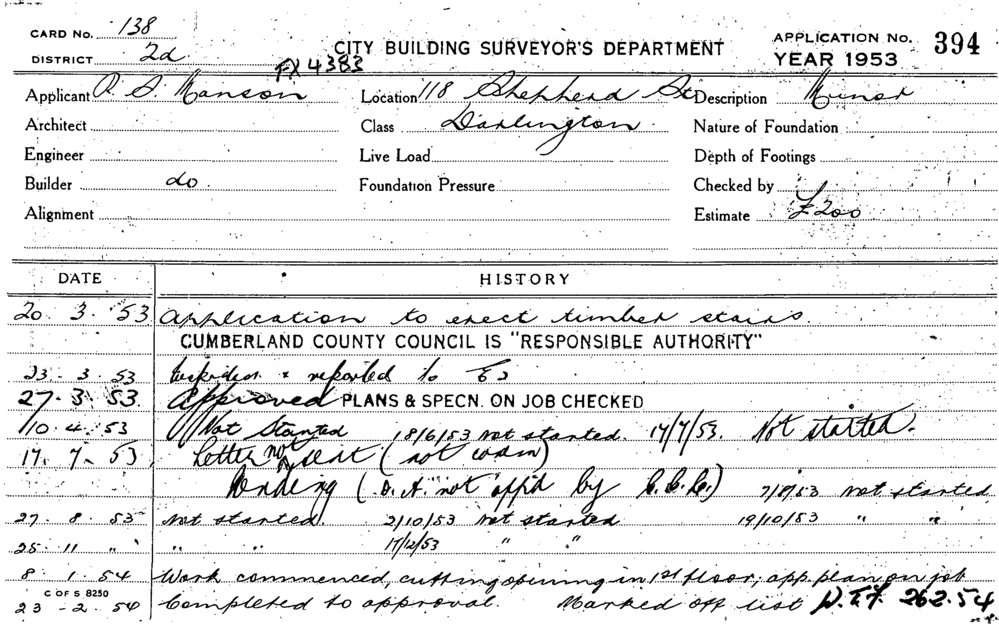 CARD No. 138
DISTRICT 2d
CITY BUILDING SURVEYOR'S DEPARTMENT
APPLICATION No. 394
YEAR 1953
FX4383
Applicant Manson Location 118 Shepherd St Description Minor
Architect Class Darlington Nature of Foundation
Engineer Live Load Depth of Footings
Builder do Foundation Pressure Checked by
Alignment Estimate £200
DATE HISTORY
20. 3. 53 Application to erect timber stairs.
CUMBERLAND COUNTY COUNCIL IS "RESPONSIBLE AUTHORITY"
23. 3. 53 & reported to
27. 3. 53. Approved PLANS & SPECN. ON JOB CHECKED
10. 4. 53 Not Started 18/6/53 not started. 17/7/53. Not started.
17. 7. 53 Letter not sent (not
Pending (D.A. not app'd by C.C.C.) 7/8/53 not started
27. 8. 53 not started. 2/10/53 not started 19/10/53 " "
25. 11 " " " 17/12/53 " "
8. 1. 54 Work commenced, cutting opening in 1st floor, app. plan on job
C OF S 8250
23 - 2. 54 Completed to approval. Marked off list 26.2.54